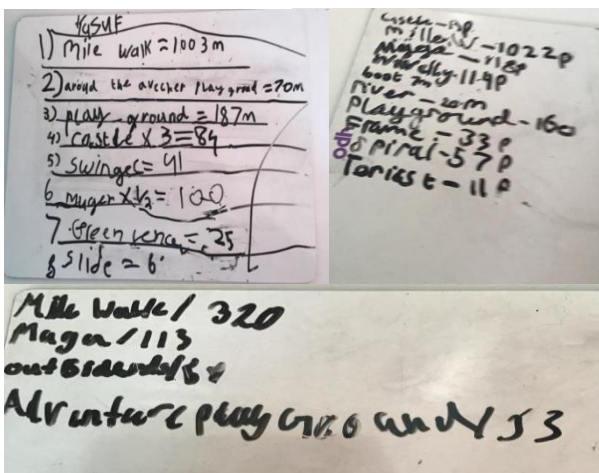 Yusuf
1) mile walk = 1003m
2) aroud the avecher playgroud = 70m
3) play ground = 187m
4) castle x 3 = 84
5) swinges = 41
6 muger x 1/2 = 100
7 Green = 25
8 slide = 6
mile w - 1022p
Muga - 118p
- 119p
boat 7m
river - 20m
Playground - 160
Frame - 33p
Spiral - 57p
- 11p
Mile walk / 320
Maga / 113
Adventure play ground / 53